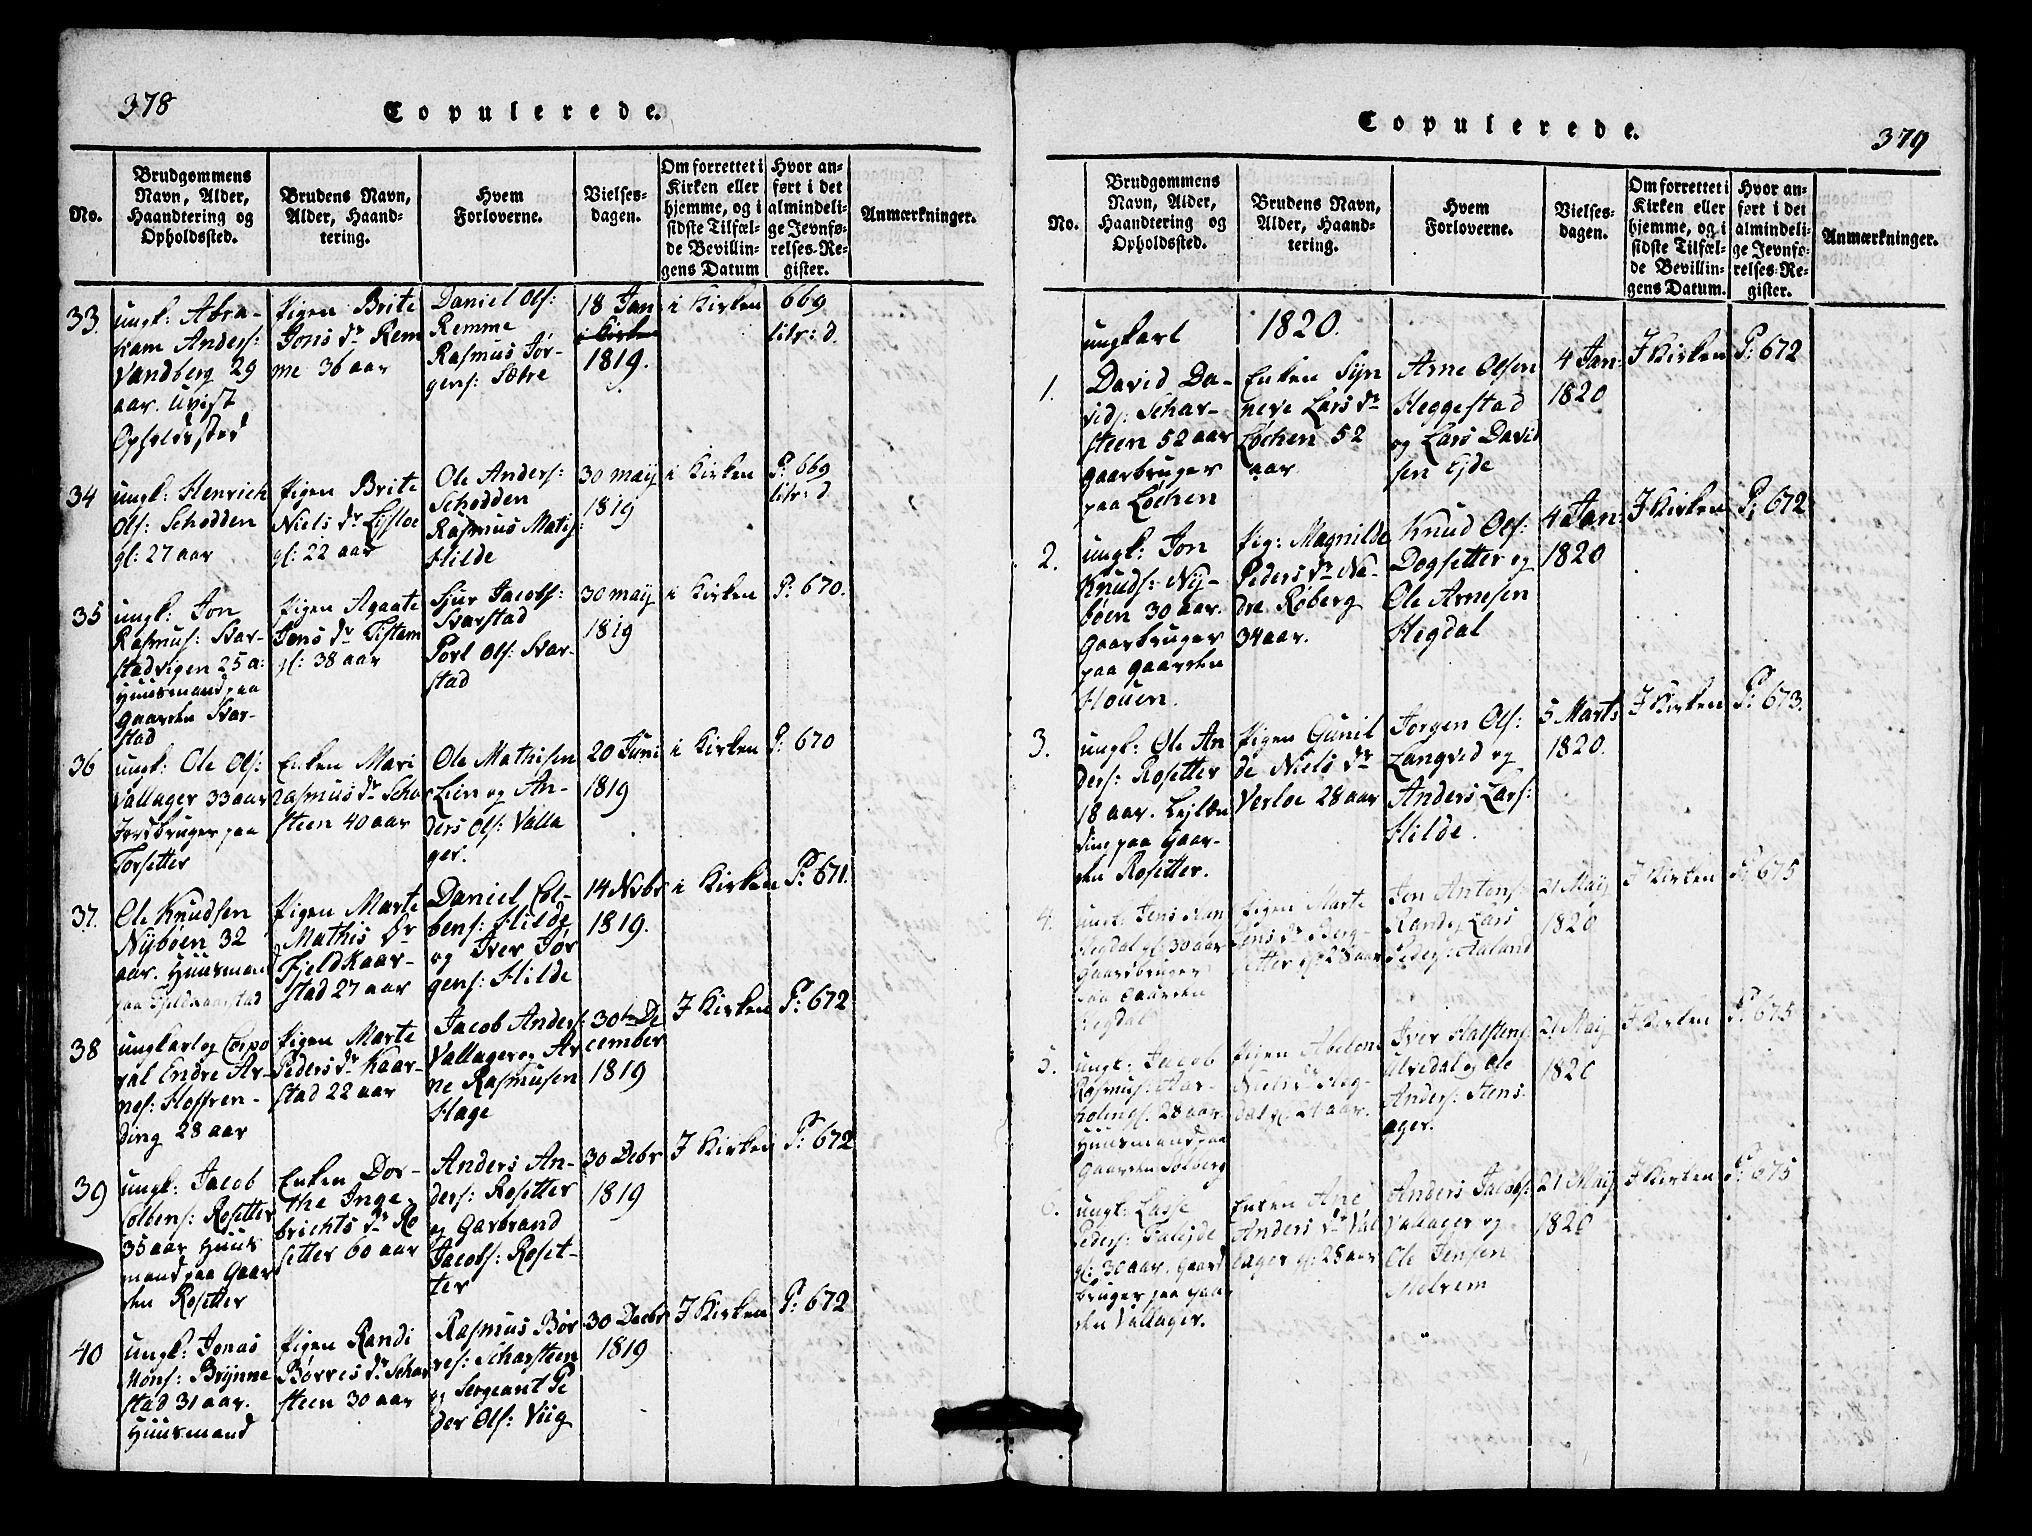 378
Copulerede.
No.
Brudgommens
Navn, Alder,
Haandtering og
Opholdssted.
Brudens Navn,
Alder, Haand-
tering.
Hvem
Forloverne.
Vielses-
dagen.
Om forrettet i
Kirken eller
hjemme, og i
sidste Tilfæl-
de Bevillin-
gens Datum
Hvor an-
ført i det
almindeli-
ge Jevnfø-
relses-Re-
gister.
Anmærkninger.
33.
ungk: Abra-
ham Anders:
Vandberg 29
aar. Uvist
Opholdssted
Pigen Brite
Jons dr Rem
me 36 aar
Daniel Ols:
Remme
Rasmus Jør-
gens: Sætre
18 Jan
i Kirke
1819.
i Kirken
669
litr: d.
34
ungk: Henrich
Ols: Schodden
gl: 27 aar
Pigen Brite
Niels dr Lisloe
gl: 22 aar
Ole Anders:
Schodden
Rasmus Matis:
Hilde
30 maij
1819
i Kirken
P: 669
litr: d
35
ungk: Jon
Rasmus: Svar-
stadvigen 25 a:
Huusmand paa
Gaarden Svar-
stad
Pigen Agaate
Jens dr Tistam
gl: 38 aar
Sjur Jacobs:
Svarstad
Porl Ols: Svar-
stad
30 maij
1819
i Kirken
P: 670.
36
ungk: Ole Ols:
Vallager 33 aar
Jordbruger paa
Torsetter
Enken Mari
Rasmus dr Scha
steen 40 aar
Ole Mathisen
Lien og An-
ders Ols: Valla
ger.
20 Juni
1819
i Kirken
P: 670
37.
Ole Knudsen
Nybøen 32
aar. Huusmand
paa Fjeldkaarstad
Pigen Marte
Mathis dr
Fjeldkaar-
stad 27 aar
Daniel Col-
bens: Hilde
og Iver Jør
gens: Hilde
14 Novbr
1819.
i Kirken
P: 671.
38
ungkarl og Corpo
ral Endre Ar-
nes: Hoffren-
ding 28 aar
Pigen Marte
Peders dr Kaar-
stad 22 aar
Jacob Anders:
Vallager og Ar
ne Rasmusen
Hage
30te De
cember
1819
I Kirken
P: 672
39
ungk: Jacob
Colbens: Rosetter
35 aar Huus
mand paa Gaar
den Rosetter
Enken Dor-
the Inge
brichts dr Ro
setter 60 aar
Anders An-
ders: Rosetter
og Garbrand
Jacobs: Roset-
ter
30 Debr
1819
I Kirken
P: 672
40
ungk: Jonas
Mons: Brynne
stad 31 aar.
Huusmand
Pigen Randi
Børres dr Schar
steen 30 aar
Rasmus Bør
res: Scharsteen
og Sergeant Pe
der Ols: Viig
30 Decbr
1819
I Kirken
P: 672
379
Copulerede.
No.
Brudgommens
Navn, Alder,
Haandtering og
Opholdssted.
Brudens Navn,
Alder, Haand-
tering.
Hvem
Forloverne.
Vielses-
dagen.
Om forrettet i
Kirken eller
hjemme, og i
sidste Tilfæl-
de Bevillin-
gens Datum.
Hvor an-
ført i det
almindeli-
ge Jevnfø-
relses-Re-
gister.
Anmærkninger.
1820.
1.
ungkarl
David Da-
vids: Schar-
steen 52 aar
Gaarbruger
paa Løchen
Enken Syn
neve Lars dr
Løchen 52
aar
Arne Olsen
Heggestad
og Lars David
sen Ejde
4 Jan:
1820
I Kirken
P: 672
2.
ungk: Jon
Knuds: Ny-
bøen 30 aar.
Gaarbruger
paa Gaarden
Houen.
Pig: Magnilde
Peders dr Ne-
dre Røberg
34 aar.
Knud Ols:
Dogsetter og
Ole Arnesen
Hegdal
4 Jan:
1820
I Kirken
P: 672
3.
ungk: Ole An
ders: Rosetter
18 aar. Lejlæn
ding paa Gaar-
den Rosetter.
Pigen Gunil
de Niels dr
Verloe 28 aar
Jørgen Ols:
Langvid og
Anders Lars:
Hilde.
5 Marts
1820.
I Kirken
P: 673.
4.
ungk: Jens
Hegdal gl: 30 aar
Gaardbruger
paa Gaarden
Hegdal
Pigen Marte
Jens dr Berg-
setter gl: 28 aar
Jon Antons:
Rand og Lars
Peders: Aaland
21 Maij
1820
I Kirken
P: 675
5.
ungk: Jacob
Rasmus: Aar-
holm gl: 28 aar.
Huusmand paa
Gaarden Solberg
Pigen Abelone
Niels dr Heg-
dal gl: 21 aar.
Iver Halstens:
Ulvedal og Ole
Anders: Stens-
ager.
21 Maij
1820
I Kirken
P: 675
6.
ungk: Lasse
Peders: Falejde
gl: 30 aar. Gaard
bruger paa Gaar
den Vallager.
Enken Ane
Anders dr Val
lager gl: 28 aar
Anders Jacobs:
Vallager og
Ole Jensen
Melvem
21 Maij
1820
I Kirken
P: 675